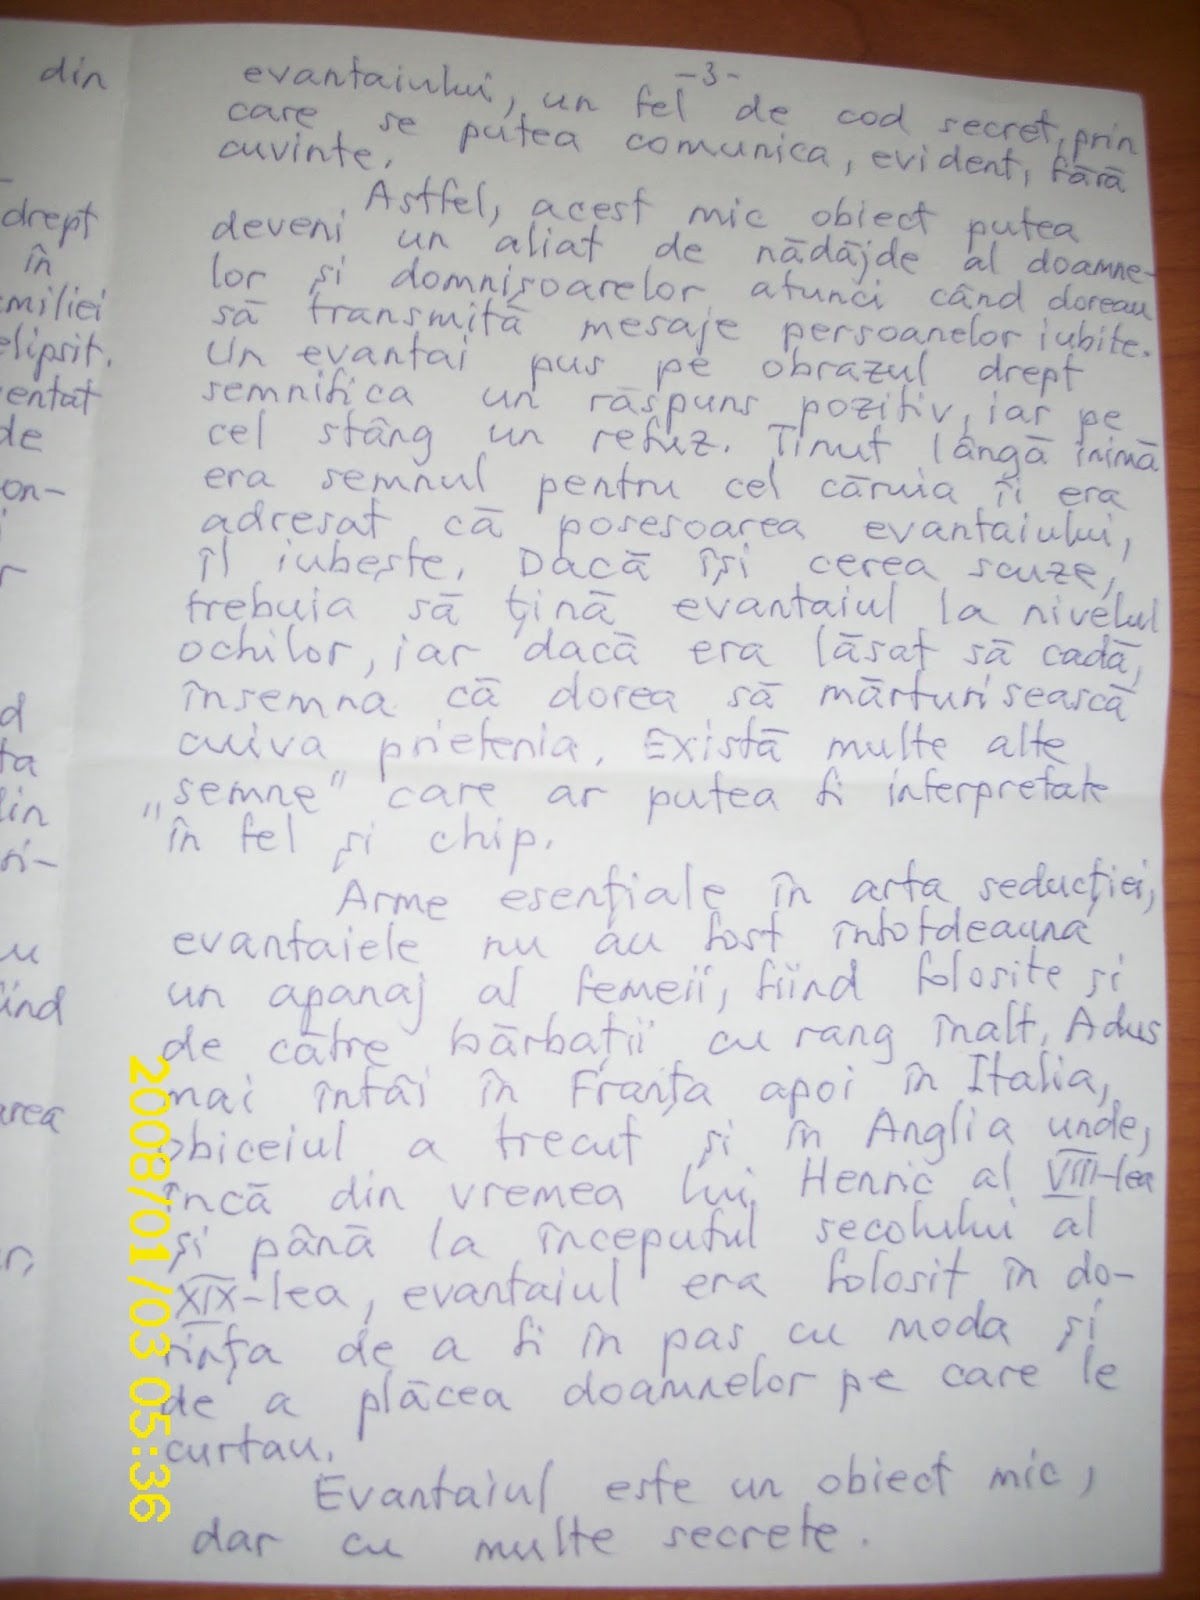 din
drept
în
miliei
elipsit.
entat
de
on-
r
d
ta
lin
si-
u
iind
area
r,
-3-
evantaiului, un fel de cod secret, prin
care se putea comunica, evident, fără
cuvinte.
Astfel, acest mic obiect putea
deveni un aliat de nădăjde al doamne-
lor și domnișoarelor atunci când doreau
să transmită mesaje persoanelor iubite.
Un evantai pus pe obrazul drept
semnifica un răspuns pozitiv, iar pe
cel stâng un refuz. Ținut lângă inimă
era semnul pentru cel căruia îi era
adresat că posesoarea evantaiului,
îl iubește. Dacă își cerea scuze,
trebuia să țină evantaiul la nivelul
ochilor, iar dacă era lăsat să cadă,
însemna că dorea să mărturisească
cuiva prietenia. Există multe alte
„semne” care ar putea fi interpretate
în fel și chip.
Arme esențiale în arta seducției,
evantaiele nu au fost întotdeauna
un apanaj al femeii, fiind folosite și
de către bărbații cu rang înalt. Adus
mai întâi în Franța apoi în Italia,
obiceiul a trecut și în Anglia unde,
încă din vremea lui Henric al VIII-lea
și până la începutul secolului al
XIX-lea, evantaiul era folosit în do-
rința de a fi în pas cu moda și
de a plăcea doamnelor pe care le
curtau.
Evantaiul este un obiect mic,
dar cu multe secrete.
2008/01/03 05:36